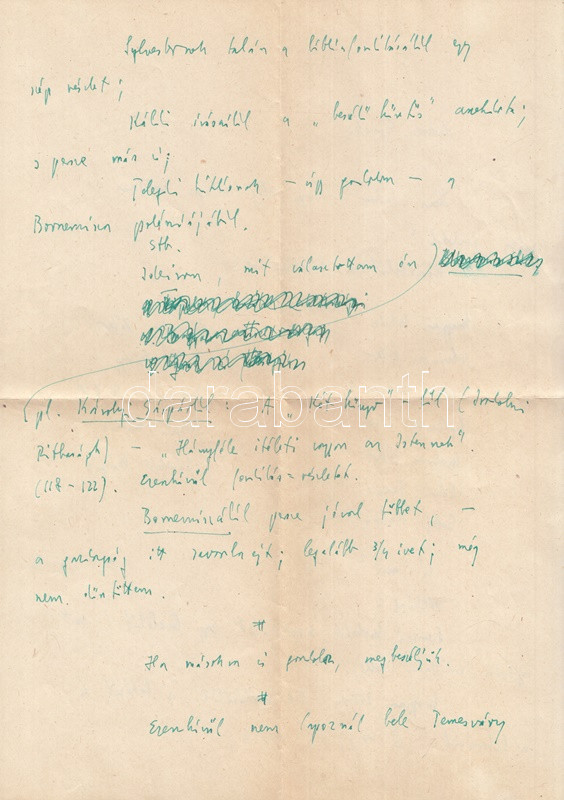 Sylvesternek talán a bibliafordításából egy
szép részlet;
Káldi írásaiból a „beszélő köntös” anekdota;
s persze más is;
Telegdi Miklósnak – úgy gondolom – a
Bornemisza polémiájából.
Stb.
Leírom, mit választottam én
pl. Károlyi Gáspártól: A „Két könyv”-ből (Irodalmi
Ritkaságok) – „Hányféle ítéleti vagyon az Istennek”.
(118–122). Ezenkívül fordítás-részletet.
Bornemiszától persze jóval többet, –
a gazdagság itt zavarba ejt; legalább 3/4 ívet; még
nem döntöttem.
#
Ha másokra is gondolsz, megbeszéljük.
#
Ezenkívül nem bele Temesváry
darabanth